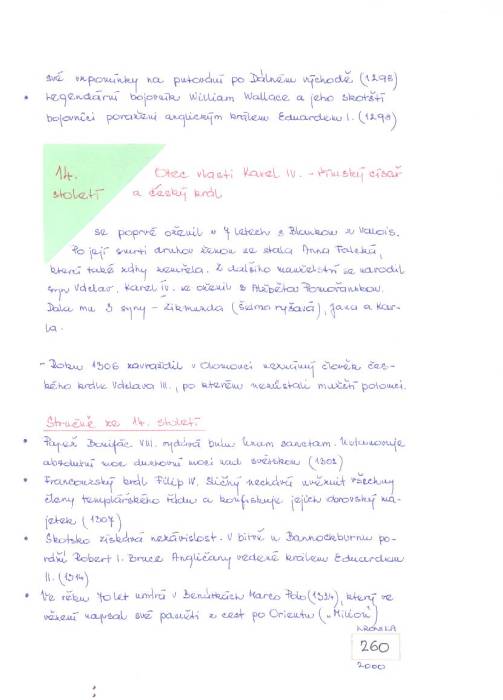 své vzpomínky na putování po Dálném východě (1298)
• Legendární bojovník William Wallace a jeho skotští
bojovníci poraženi anglickým králem Eduardem I. (1298)
14. století
Otec vlasti Karel IV. - římský císař
a český král
se poprvé oženil v 7 letech s Blankou z Valois.
Po její smrti druhou ženou se stala Anna Falcká,
která také záhy zemřela. Z dalšího manželství se narodil
syn Václav. Karel IV. se oženil s Alžbětou Pomořanskou.
Dala mu 3 syny - Zikmunda (šelma ryšavá), Jana a Kar-
la.
- Roku 1306 zavraždil v Olomouci neznámý člověk čes-
kého krále Václava III., po kterém nezůstali mužští potomci.
Stručně ze 14. století
• Papež Bonifác VIII. vydává bulu Unam sanctam. Ustanovuje
absolutní moc duchovní moci nad světskou (1302)
• Francouzský král Filip IV. Sličný nechává uvěznit všechny
členy templářského řádu a konfiskuje jejich obrovský ma-
jetek (1307)
• Skotsko získává nezávislost. V bitvě u Bannockburnu po-
razil Robert I. Bruce Angličany vedené králem Eduardem
II. (1314)
• Ve věku 70 let umírá v Benátkách Marco Polo (1324), který ve
vězení napsal své paměti z cest po Orientu („Milion")
KRONIKA
260
2000